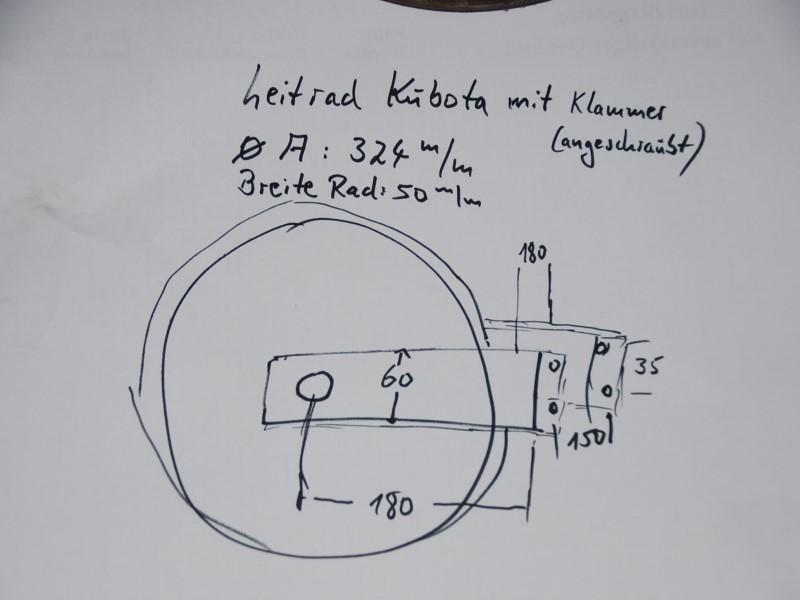 Leitrad Kubota mit Klammer
(angeschraubt)
Ø A: 324 m/m
Breite Rad: 50 m/m
180
60
35
150
180